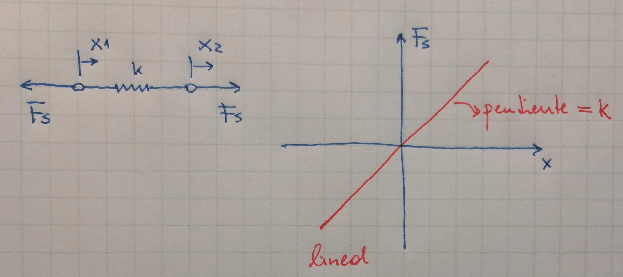 x1
x2
k
Fs
Fs
Fs
pendiente = k
x
lineal